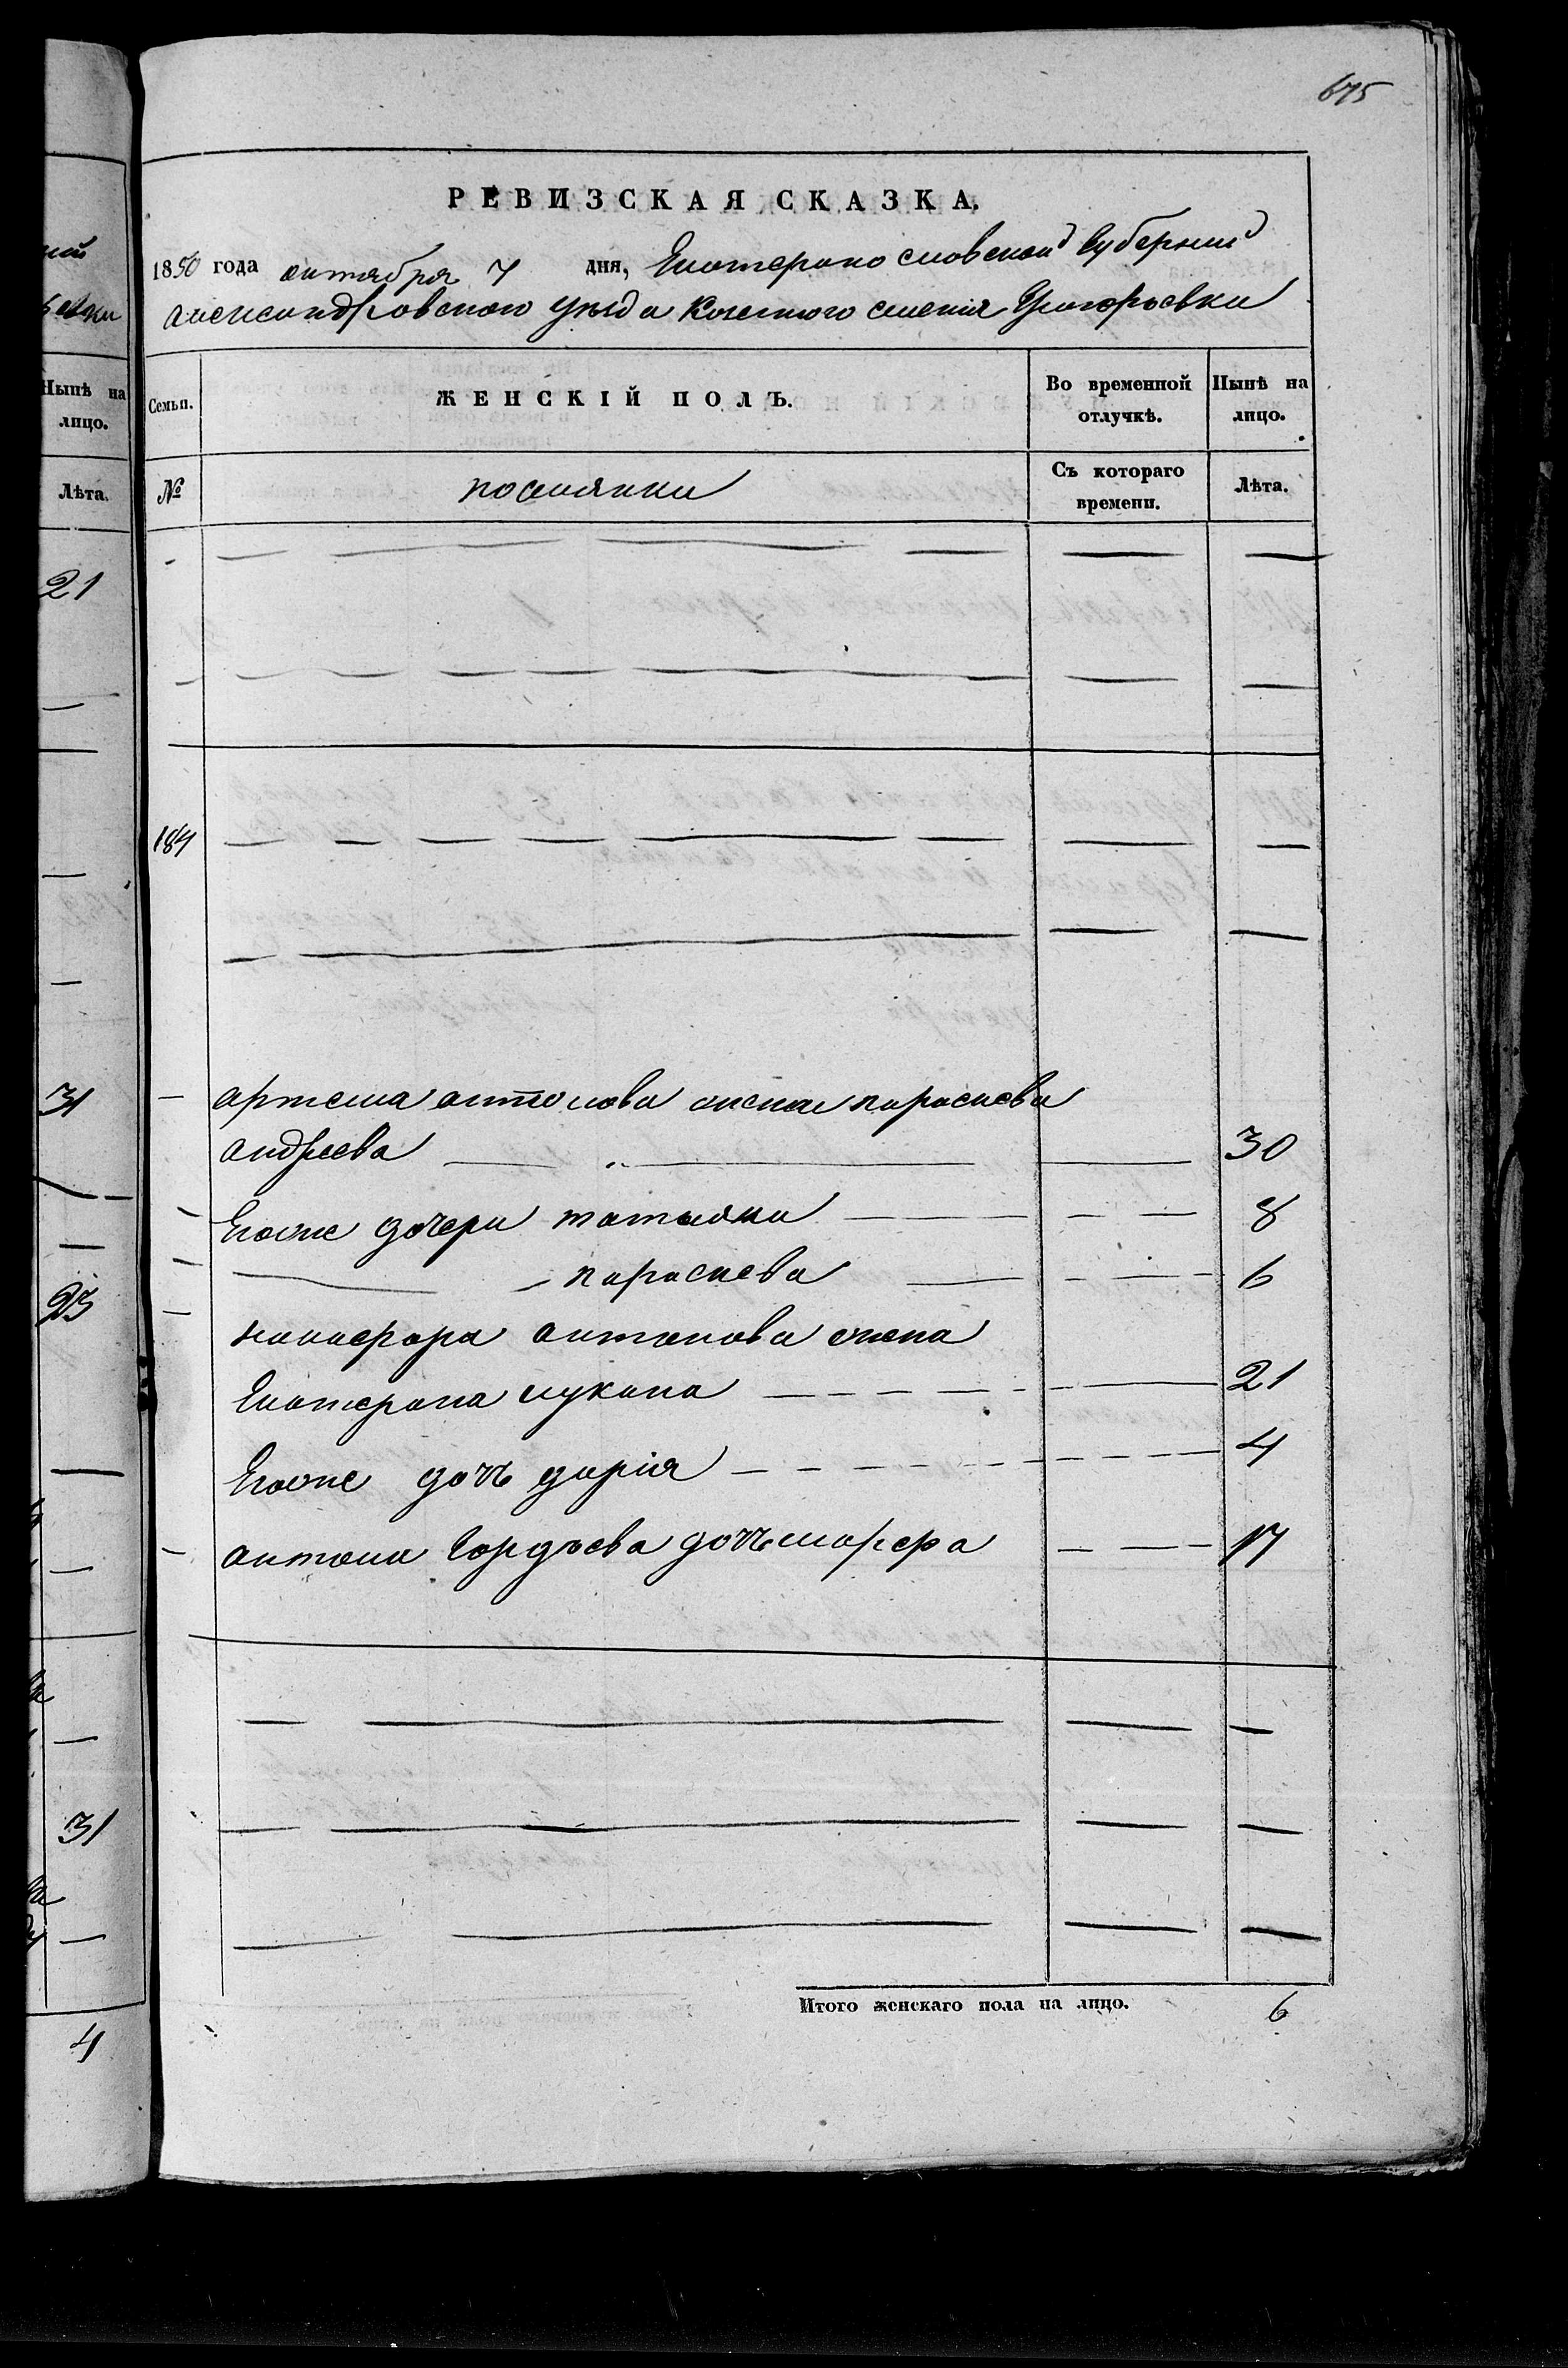 675
РЕВИЗСКАЯ СКАЗКА.
1850 года октября 7 дня, Екатериносл­овской Губернии
Александровского уезда Казенного селения Григорьевки
Семьи. ЖЕНСКІЙ ПОЛЪ. Во временной отлучкѣ. Нынѣ на лицо.
№ поселянки Съ котораго времени. Лѣта.
184
Артема антонова жена параскева
андреева 30
Егоже дочери татьяна 8
параскева 6
никифора антонова жена
Екатерина лукина 21
Егоже дочь дарія 4
антона Гордѣева дочь марфа 17
Итого женскаго пола на лицо. 6
Нынѣ на лицо.
Лѣта.
21
31
23
31
4